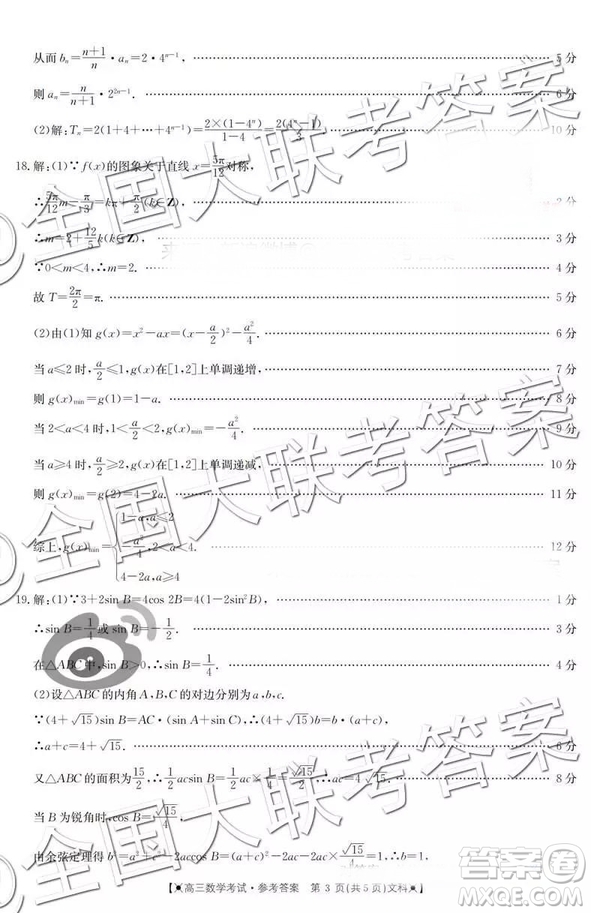 从而 bₙ=(n+1)/n·aₙ=2·4ⁿ⁻¹ 5 分
则 aₙ=n/(n+1)·2²ⁿ⁻¹. 6 分
(2)解:Tₙ=2(1+4+…+4ⁿ⁻¹)=2×(1-4ⁿ)/(1-4)=2(4ⁿ-1)/3 10 分
18.解:(1)∵f(x)的图象关于直线 x=5π/12 对称,
∴5π/12 m-π/3=kπ+π/2(k∈Z) 2 分
∴m=2+12/5 k(k∈Z) 3 分
∵0<m<4,∴m=2. 4 分
故 T=2π/2=π. 5 分
(2)由(1)知 g(x)=x²-ax=(x-a/2)²-a²/4. 6 分
当 a≤2 时,a/2≤1,g(x)在[1,2]上单调递增, 7 分
则 g(x)min=g(1)=1-a. 8 分
当 2<a<4 时,1<a/2<2,g(x)min=-a²/4. 9 分
当 a≥4 时,a/2≥2,g(x)在[1,2]上单调递减, 10 分
则 g(x)min=g(2)=4-2a. 11 分
综上,g(x)min={1-a,a≤2
-a²/4,2<a<4
4-2a,a≥4 12 分
19.解:(1)∵3+2sin B=4cos 2B=4(1-2sin²B), 1 分
∴sin B=1/4或 sin B=-1/2. 3 分
在△ABC 中,sin B>0,∴sin B=1/4. 4 分
(2)设△ABC 的内角 A,B,C 的对边分别为 a,b,c.
∵(4+√15)sin B=AC·(sin A+sin C),∴(4+√15)b=b(a+c),
∴a+c=4+√15. 6 分
又△ABC 的面积为√15/2,∴1/2 acsin B=1/2 ac×1/4=√15/2,∴ac=4√15. 8 分
当 B 为锐角时,cos B=√15/4.
由余弦定理得 b²=a²+c²-2accos B=(a+c)²-2ac-2ac×√15/4=1,∴b=1.
高三数学考试·参考答案 第 3 页(共 5 页)文科
全国大联考答案
全国大联考答案
全国大联考答案
答案圈
MXQE.COM